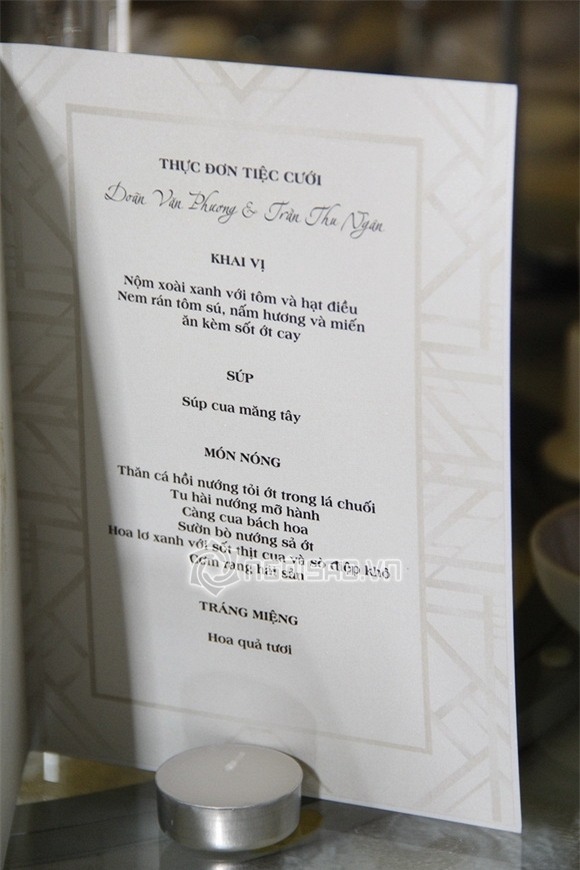 THỰC ĐƠN TIỆC CƯỚI
Doãn Văn Phương & Trần Thu Ngân
KHAI VỊ
Nộm xoài xanh với tôm và hạt điều
Nem rán tôm sú, nấm hương và miến
ăn kèm sốt ớt cay
SÚP
Súp cua măng tây
MÓN NÓNG
Thăn cá hồi nướng tỏi ớt trong lá chuối
Tu hài nướng mỡ hành
Càng cua bách hoa
Sườn bò nướng sả ớt
Hoa lơ xanh với sốt thịt cua và sò điệp khô
Cơm rang hải sản
NGÔISAO.VN
TRÁNG MIỆNG
Hoa quả tươi